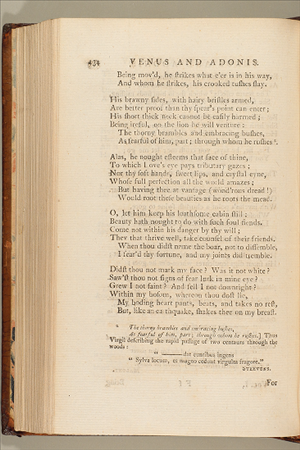 434 VENUS AND ADONIS.
Being mov'd, he strikes what e'er is in his way,
And whom he strikes, his crooked tushes slay.
His brawny sides, with hairy bristles armed,
Are better proof than thy spear's point can enter;
His short thick neck cannot be easily harmed;
Being ireful, on the lion he will venture:
The thorny brambles and embracing bushes,
As fearful of him, part; through whom he rushes.
Alas, he nought esteems that face of thine,
To which Love's eye pays tributary gazes;
Nor thy soft hands, sweet lips, and crystal eyne,
Whose full perfection all the world amazes;
But having thee at vantage (wond'rous dread!)
Would root these beauties as he roots the mead.
O, let him keep his loathsome cabin still;
Beauty hath nought to do with such foul fiends.
Come not within his danger by thy will;
They that thrive well, take counsel of their friends.
When thou didst name the boar, not to dissemble,
I fear'd thy fortune, and my joints did tremble.
Didst thou not mark my face? Was it not white?
Saw'st thou not signs of fear lurk in mine eye?
Grew I not faint? And fell I not downright?
Within my bosom, whereon thou dost lie,
My boding heart pants, beats, and takes no rest,
But, like an earthquake, shakes thee on my breast.
The thorny brambles and embracing bushes,
As fearful of him, part; through whom he rushes.] Thus
Virgil describing the rapid passage of two centaurs through the
woods:
"——dat euntibus ingens
"Sylva locum, et magno cedunt virgulta fragore."
For